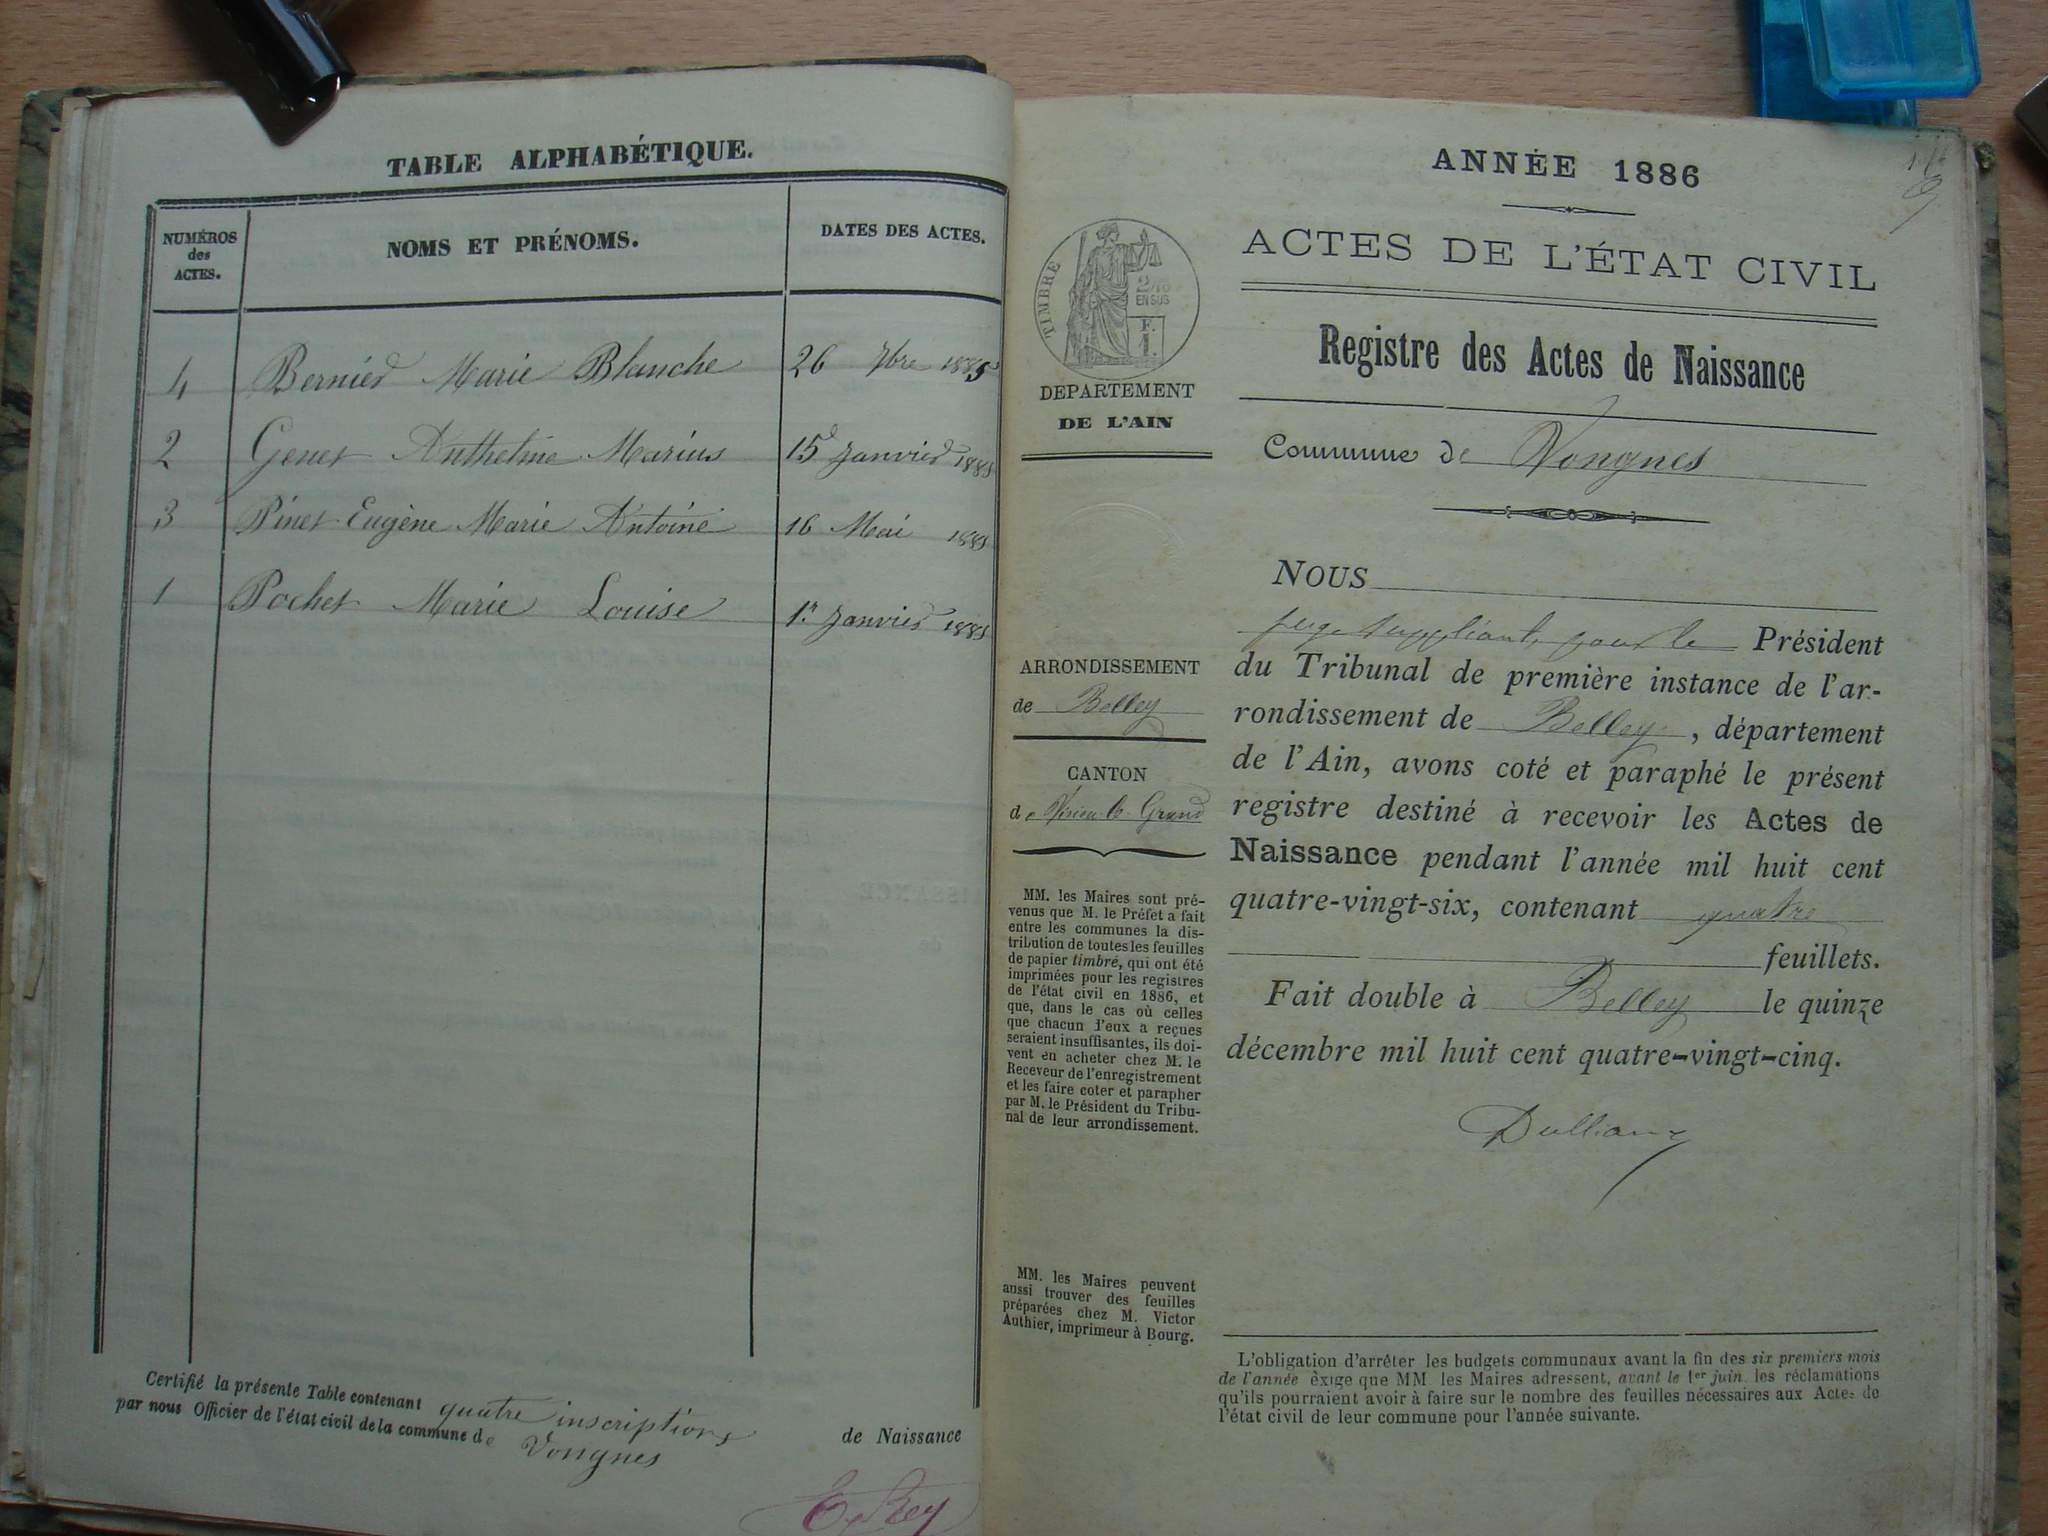 TABLE ALPHABÉTIQUE.
NUMÉROS des ACTES.
NOMS ET PRÉNOMS.
DATES DES ACTES.
4 Bernier Marie Blanche 26 7bre 1885
2 Genet Anthelme Marius 15 Janvier 1885
3 Pinet Eugène Marie Antoine 16 Mai 1885
1 Pochet Marie Louise 1r Janvier 1885
Certifié la présente Table contenant quatre inscriptions de Naissance
par nous Officier de l'état civil de la commune de Vongnes
E. Rey
ANNÉE 1886
ACTES DE L'ÉTAT CIVIL
Registre des Actes de Naissance
Commune de Vongnes
TIMBRE
2/10
EN SUS
F.
1.
DEPARTEMENT
DE L'AIN
ARRONDISSEMENT
de Belley
CANTON
de Virieu-le-Grand
MM. les Maires sont pré-
venus que M. le Préfet a fait
entre les communes la dis-
tribution de toutes les feuilles
de papier timbré, qui ont été
imprimées pour les registres
de l'état civil en 1886, et
que, dans le cas où celles
que chacun d'eux a reçues
seraient insuffisantes, ils doi-
vent en acheter chez M. le
Receveur de l'enregistrement
et les faire coter et parapher
par M. le Président du Tribu-
nal de leur arrondissement.
MM. les Maires peuvent
aussi trouver des feuilles
préparées chez M. Victor
Authier, imprimeur à Bourg.
NOUS
juge suppléant, pour le Président
du Tribunal de première instance de l'ar-
rondissement de Belley, département
de l'Ain, avons coté et paraphé le présent
registre destiné à recevoir les Actes de
Naissance pendant l'année mil huit cent
quatre-vingt-six, contenant quatre
feuillets.
Fait double à Belley le quinze
décembre mil huit cent quatre-vingt-cinq.
L'obligation d'arrêter les budgets communaux avant la fin des six premiers mois
de l'année exige que MM les Maires adressent, avant le 1er juin, les réclamations
qu'ils pourraient avoir à faire sur le nombre des feuilles nécessaires aux Actes de
l'état civil de leur commune pour l'année suivante.